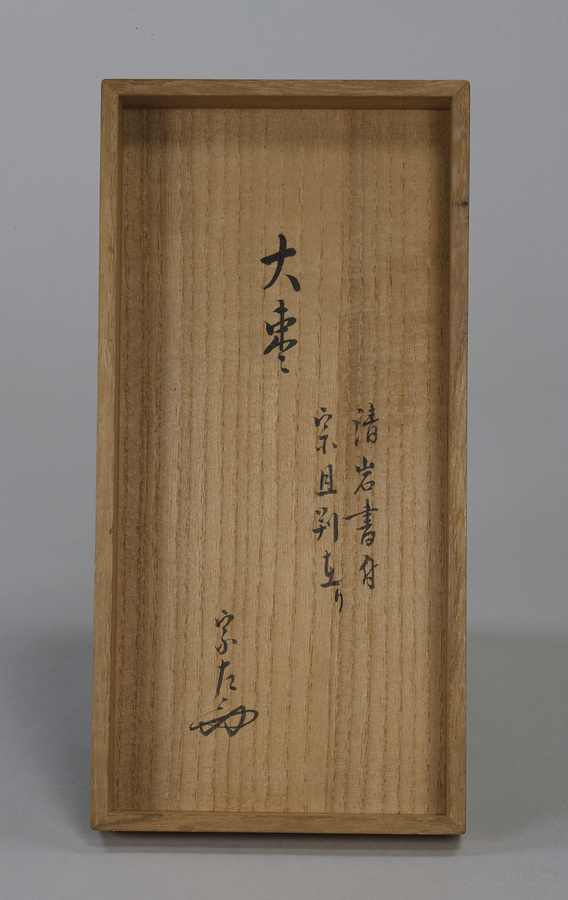 大棗
清岩書付
宗旦判在り
宗左